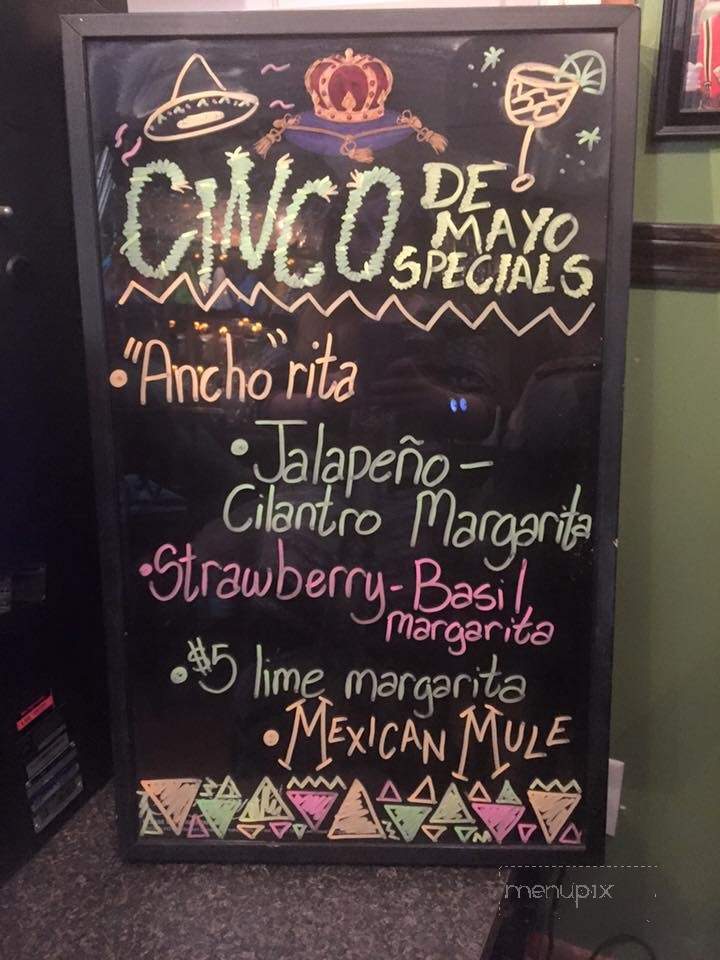 CINCO DE
MAYO
SPECIALS
• "Ancho"rita
• Jalapeño -
Cilantro Margarita
• Strawberry - Basil
margarita
• $5 lime margarita
• MEXICAN MULE
menupix